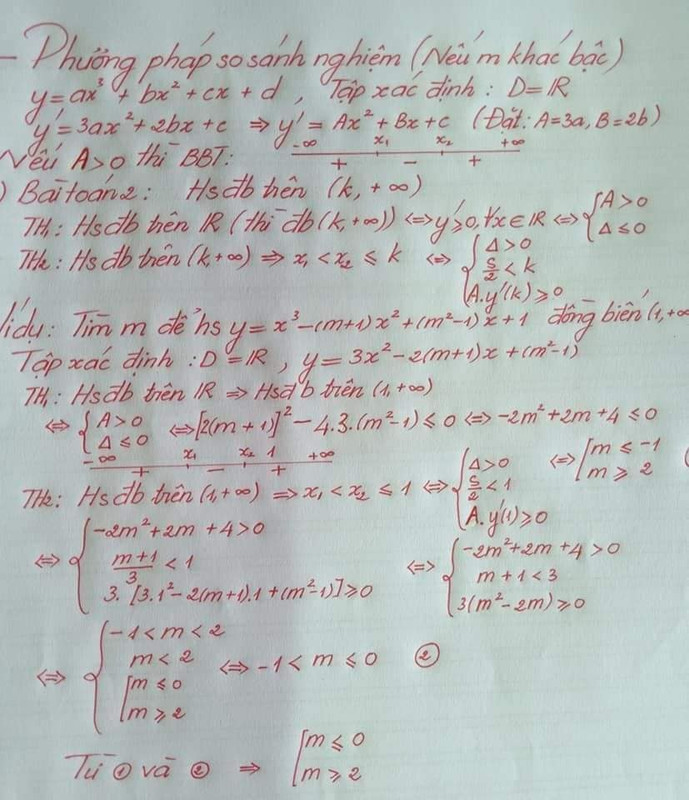 - Phương pháp so sánh nghiệm (Nếu m khác bậc)
y = ax³ + bx² + cx + d , Tập xác định : D = IR
y' = 3ax² + 2bx + c ⇒ y' = Ax² + Bx + c (Đặt: A = 3a, B = 2b)
Nếu A > 0 thì BBT: -∞ x₁ x₂ +∞
+ - +
) Bài toán 2: Hs đb trên (k, +∞)
TH₁: Hs đb trên IR (thì đb (k, +∞)) ⇔ y' ≥ 0, ∀x ∈ IR ⇔ { A > 0
Δ ≤ 0
TH₂: Hs đb trên (k, +∞) ⇒ x₁ < x₂ ≤ k ⇔ { Δ > 0
S/2 < k
A.y'(k) ≥ 0
Ví dụ: Tìm m để hs y = x³ - (m+1)x² + (m²-1)x + 1 đồng biến (1, +∞
Tập xác định : D = IR , y' = 3x² - 2(m+1)x + (m²-1)
TH₁: Hs đb trên IR ⇒ Hs đb trên (1, +∞)
⇔ { A > 0
Δ ≤ 0 ⇔ [2(m+1)]² - 4.3.(m²-1) ≤ 0 ⇔ -2m² + 2m + 4 ≤ 0
⇔ [ m ≤ -1
m ≥ 2
-∞ x₁ x₂ 1 +∞
+ - +
TH₂: Hs đb trên (1, +∞) ⇒ x₁ < x₂ ≤ 1 ⇔ { Δ > 0
S/2 < 1
A.y'(1) ≥ 0
⇔ { -2m² + 2m + 4 > 0
(m+1)/3 < 1
3.[3.1² - 2(m+1).1 + (m²-1)] ≥ 0
⇔ { -2m² + 2m + 4 > 0
m + 1 < 3
3(m² - 2m) ≥ 0
⇔ { -1 < m < 2
m < 2
[ m ≤ 0
m ≥ 2
⇔ -1 < m ≤ 0 ②
Từ ① và ② ⇒ [ m ≤ 0
m ≥ 2